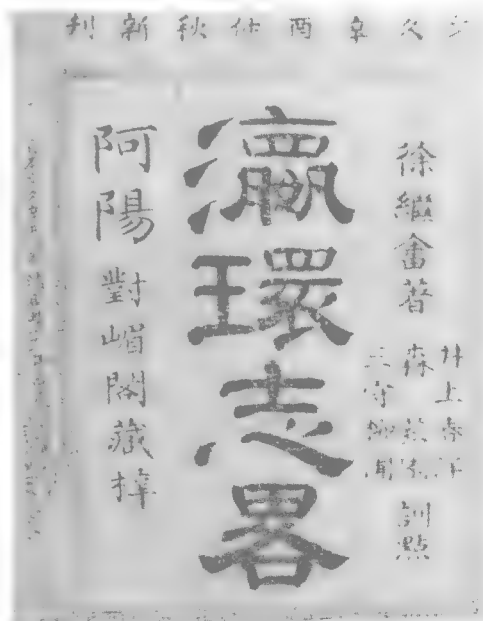 文久辛酉仲秋新刊
徐繼畬著
井上春洋
森荻園
三守柳圃
訓點
瀛環志畧
阿陽對嵋閣藏梓